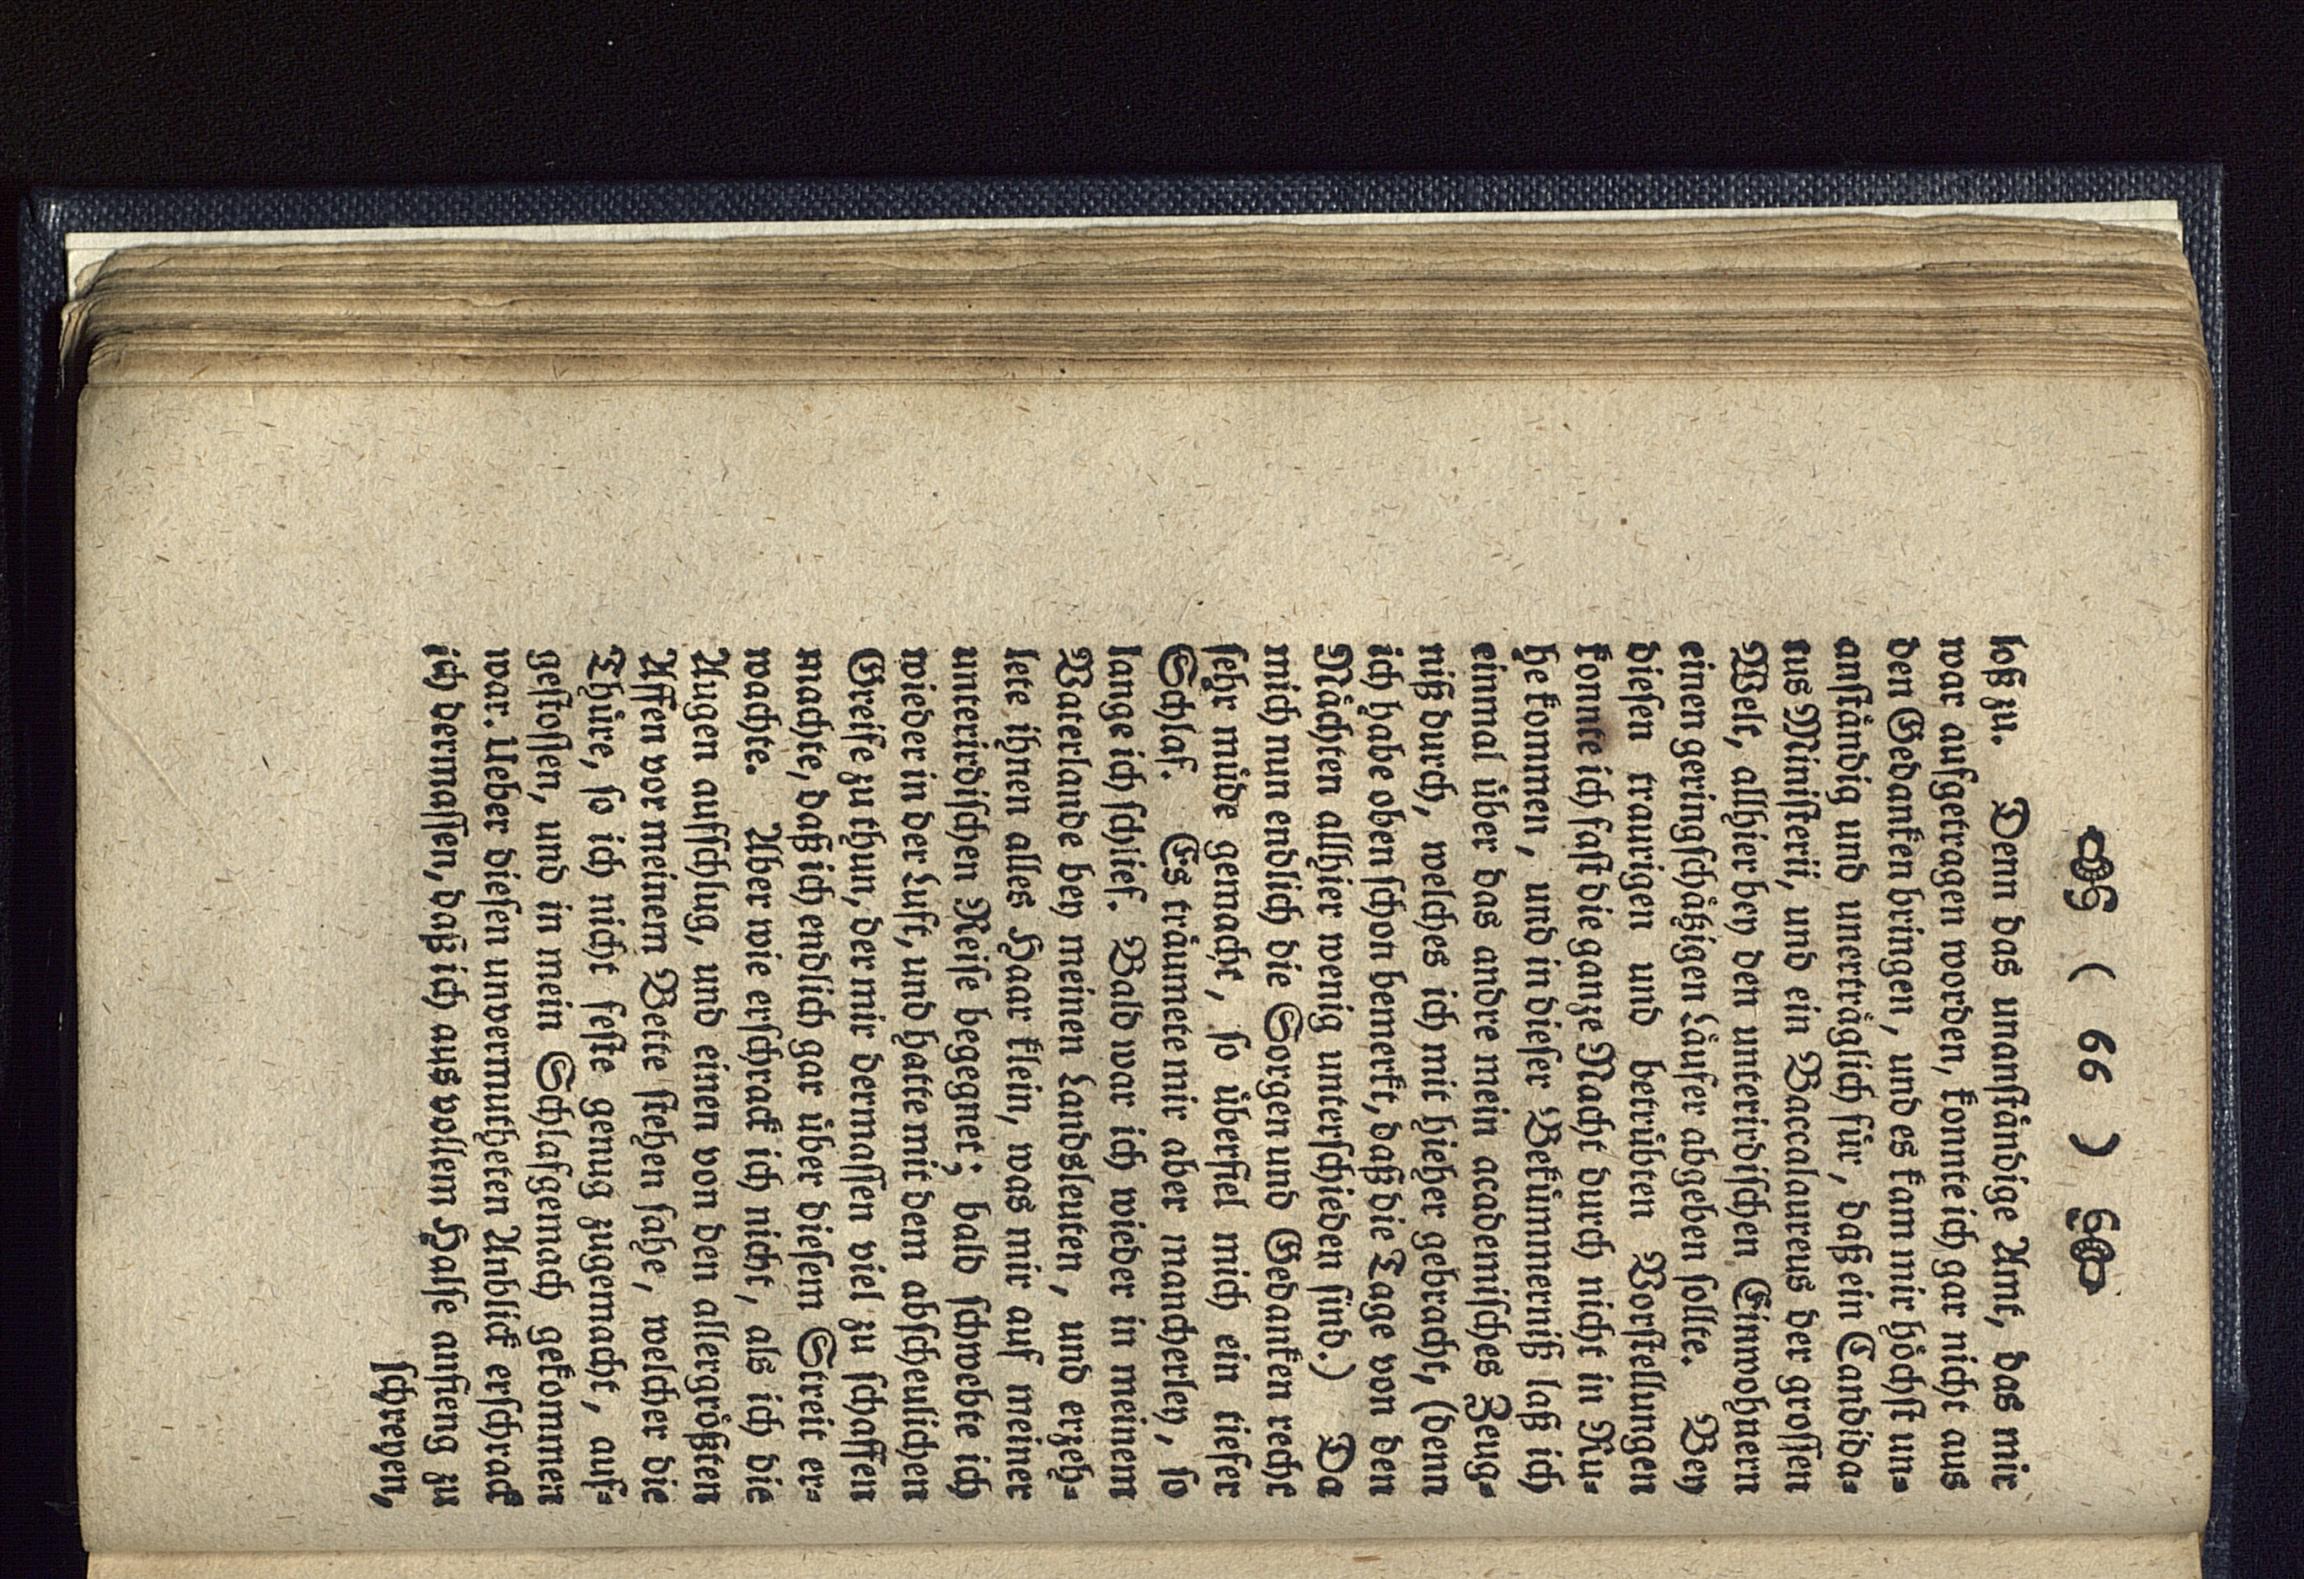 ( 66 )
loß zu. Denn das unanſtändige Amt, das mir
war aufgetragen worden, konnte ich gar nicht aus
den Gedanken bringen, und es kam mir höchſt un-
anſtändig und unerträglich für, daß ein Candida-
tus Miniſterii, und ein Baccalaureus der groſſen
Welt, allhier bey den unterirdiſchen Einwohnern
einen geringſchätzigen Läufer abgeben ſollte. Bey
dieſen traurigen und betrübten Vorſtellungen
konnte ich faſt die ganze Nacht durch nicht in Ru-
he kommen, und in dieſer Bekümmerniß laß ich
einmal über das andre mein academiſches Zeug-
niß durch, welches ich mit hieher gebracht, (denn
ich habe oben ſchon bemerkt, daß die Tage von den
Nächten allhier wenig unterſchieden ſind.) Da
mich nun endlich die Sorgen und Gedanken recht
ſehr müde gemacht, ſo überfiel mich ein tiefer
Schlaf. Es träumete mir aber mancherley, ſo
lange ich ſchlief. Bald war ich wieder in meinem
Vaterlande bey meinen Landsleuten, und erzeh-
lete ihnen alles Haar klein, was mir auf meiner
unterirdiſchen Reiſe begegnet; bald ſchwebte ich
wieder in der Luft, und hatte mit dem abſcheulichen
Greife zu thun, der mir dermaſſen viel zu ſchaffen
machte, daß ich endlich gar über dieſem Streit er-
wachte. Aber wie erſchrack ich nicht, als ich die
Augen aufſchlug, und einen von den allergröſten
Affen vor meinem Bette ſtehen ſahe, welcher die
Thüre, ſo ich nicht feſte genug zugemacht, auf-
geſtoſſen, und in mein Schlafgemach gekommen
war. Ueber dieſen unvermutheten Anblick erſchrack
ich dermaſſen, daß ich aus vollem Halſe anfieng zu
ſchreyen,